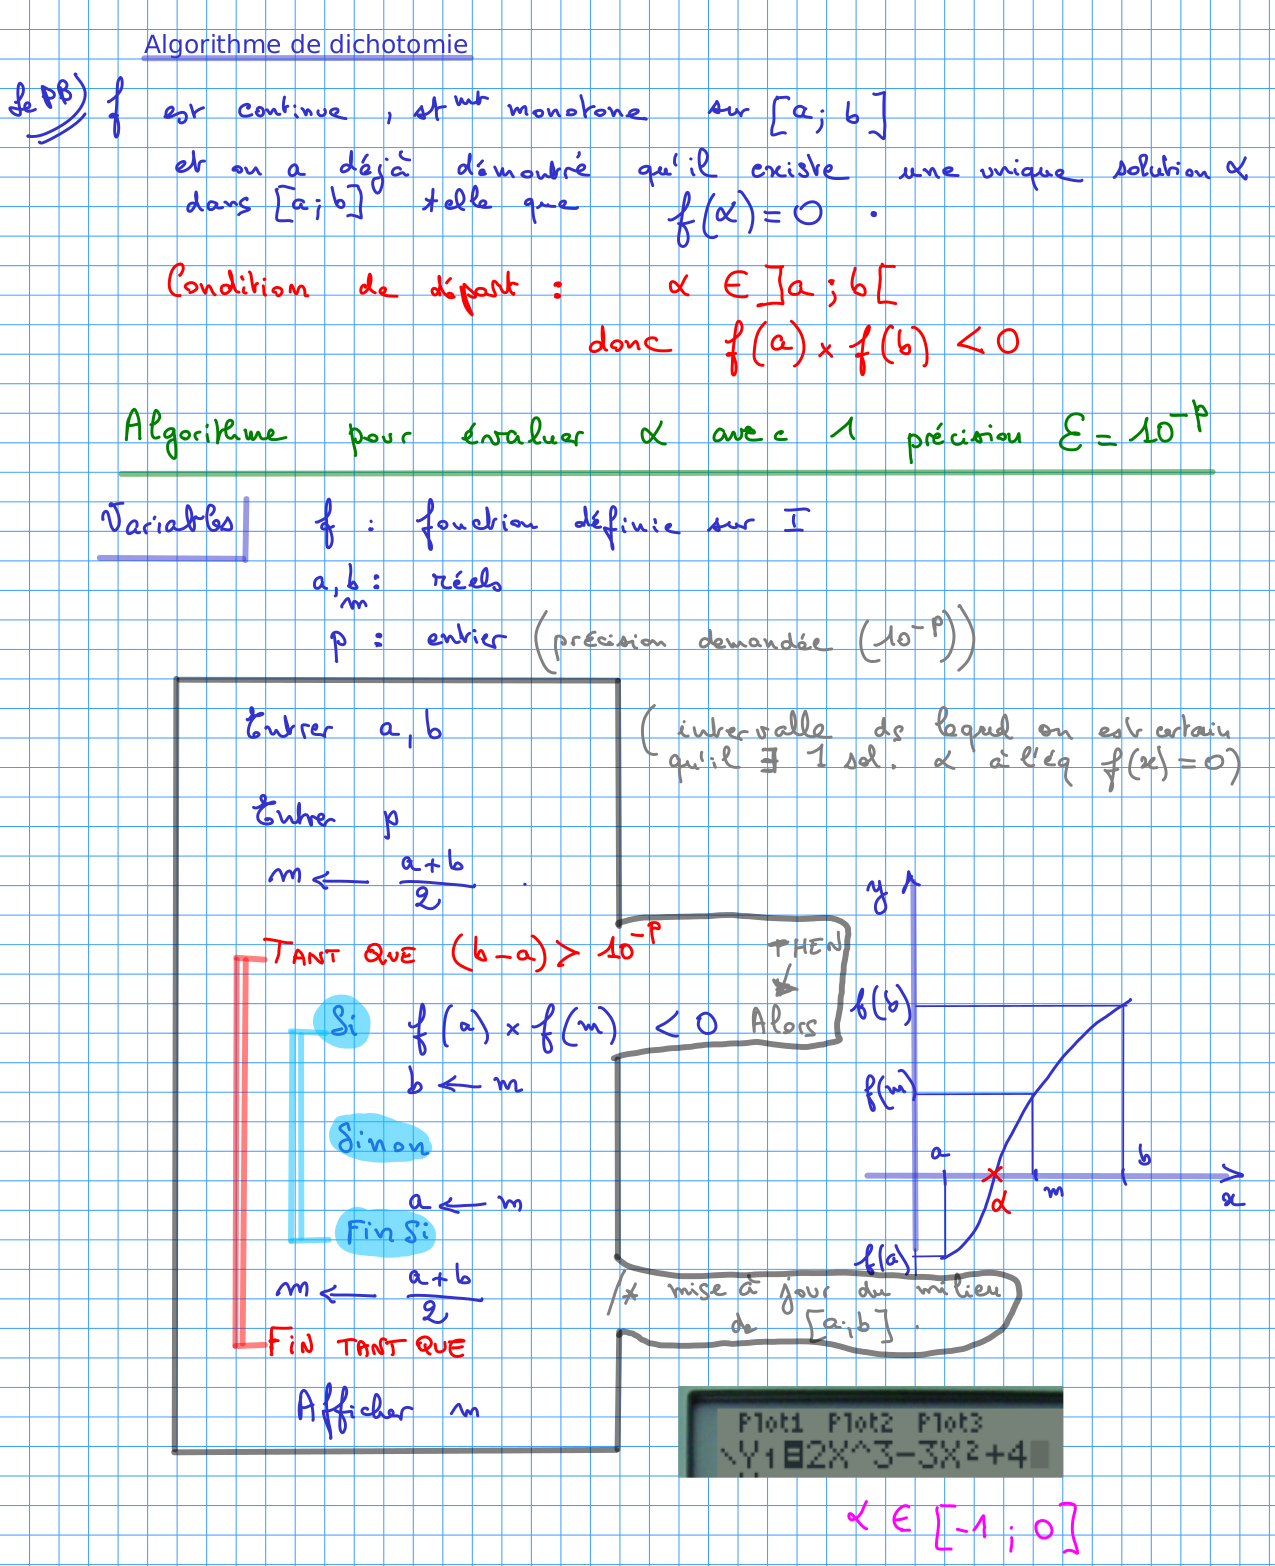 Algorithme de dichotomie
Le PB) f est continue, st^mt monotone sur [a ; b]
et on a déjà démontré qu'il existe une unique solution α
dans [a ; b] telle que f(α) = 0 .
Condition de départ : α ∈ ]a ; b[
donc f(a) × f(b) < 0
Algorithme pour évaluer α avec 1 précision ε = 10^-p
Variables f : fonction définie sur I
a, b : réels
m
p : entier (précision demandée (10^-p))
Entrer a, b (intervalle ds lequel on est certain
qu'il ∃ 1 sol. α à l'éq f(x) = 0)
Entrer p
m ← (a+b)/2 .
TANT QUE (b-a) > 10^-p
THEN
↓
Si f(a) × f(m) < 0 Alors
b ← m
Sinon
a ← m
Fin Si
m ← (a+b)/2 /* mise à jour du milieu
de [a;b] .
FIN TANT QUE
Afficher m
y
f(b)
f(m)
a
b
α
m
x
f(a)
Plot1 Plot2 Plot3
\Y1=2X^3-3X²+4
α ∈ [-1 ; 0]